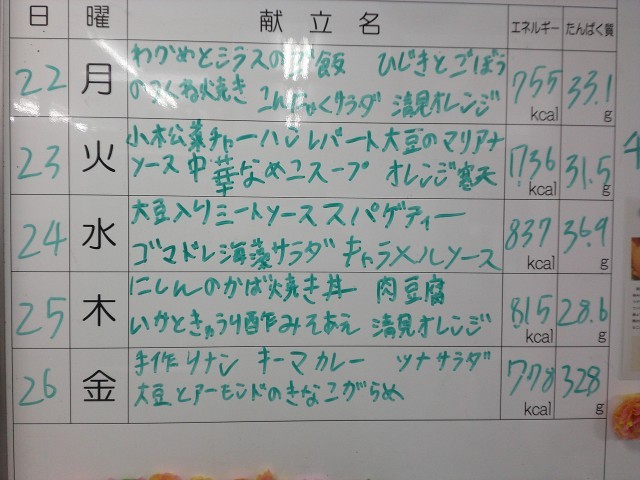 日 曜 献立名 エネルギー たんぱく質
22 月 わかめとシラスのご飯 ひじきとごぼう
のつくね焼き こんにゃくサラダ 清見オレンジ 755 kcal 33.1 g
23 火 小松菜チャーハン レバート大豆のマリアナ
ソース 中華なめこスープ オレンジ寒天 736 kcal 31.5 g
24 水 大豆入りミートソーススパゲティー
ゴマドレ海藻サラダ キャラメルソース 837 kcal 36.9 g
25 木 にしんのかば焼き丼 肉豆腐
いかときゅうり酢みそあえ 清見オレンジ 815 kcal 28.6 g
26 金 手作りナン キーマカレー ツナサラダ
大豆とアーモンドのきなこがらめ 778 kcal 328 g